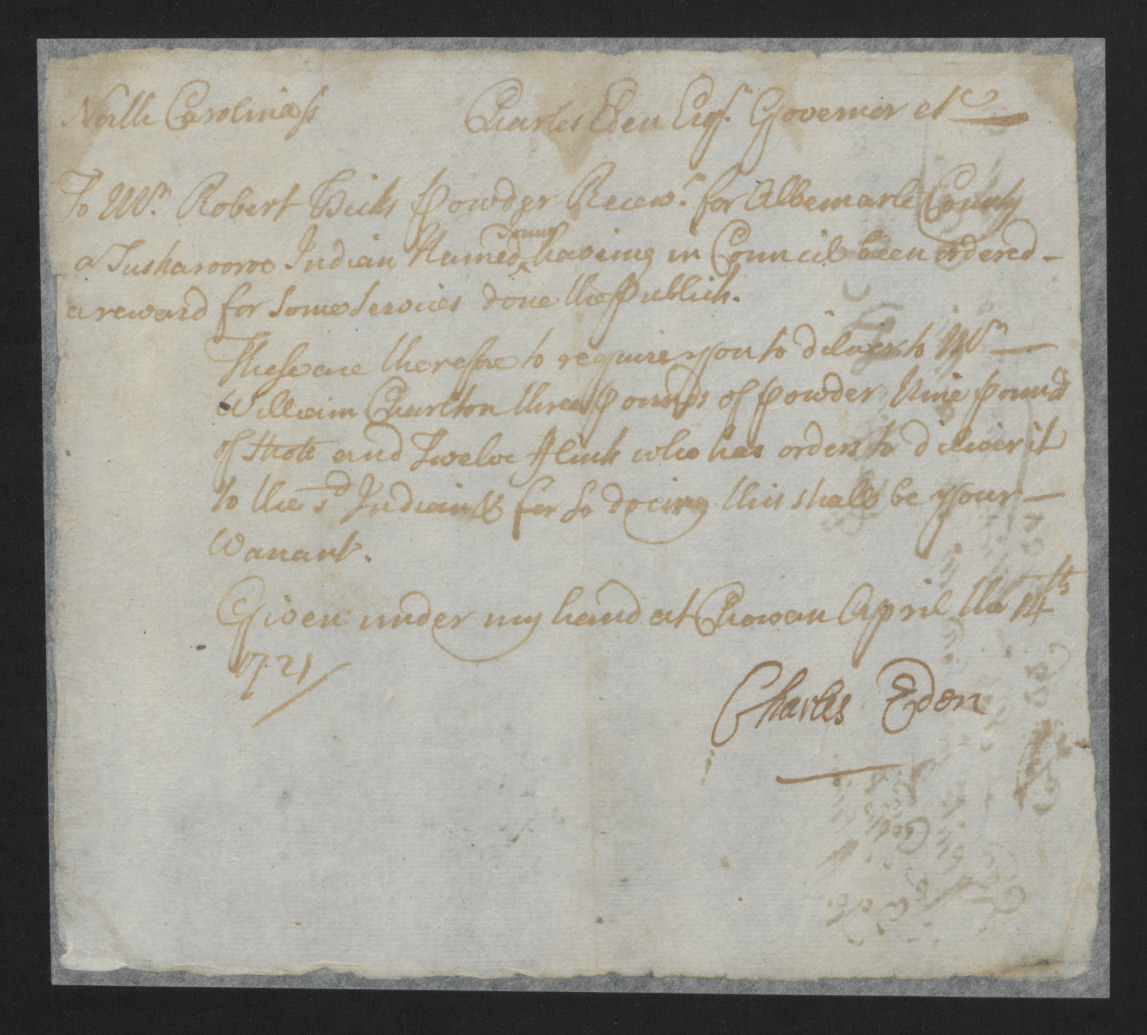 North Carolina ss
Charles Eden Esqr. Governor etc
To Mr. Robert Hicks powder Recevr. for Albemarle County
a Tusharooroe Indian Named having in Council been ordered
a reward for some services done the publick.
These are therefore to require you to diliver to Mr
William Charlton three pounds of powder Nine pound
of Shote and Twelve flints who has orders to diliver it
to the sd Indian & for so doeing this shall be your
Warrant.
Given under my hand at Chowan April the 14th
1721
Charles Eden